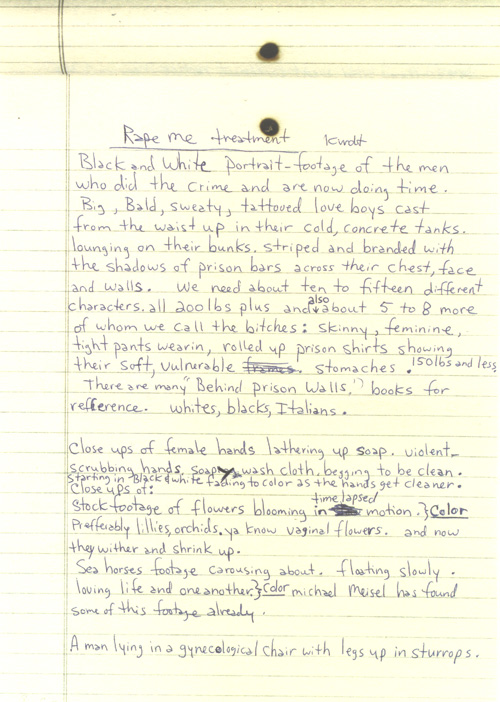 Rape me treatment Kurdt
Black and White Portrait-footage of the men
who did the crime and are now doing time.
Big, Bald, sweaty, tattooed love boys cast
from the waist up in their cold, concrete tanks.
lounging on their bunks. striped and branded with
the shadows of prison bars across their chest, face
and walls. We need about ten to fifteen different
characters. all 200 lbs plus and also about 5 to 8 more
of whom we call the bitches: skinny, feminine,
tight pants wearin, rolled up prison shirts showing
their soft, vulnerable frames. stomaches. 150lbs and less
There are many "Behind prison Walls," books for
refference. whites, blacks, Italians.
Close ups of female hands lathering up soap. violent
scrubbing hands. soapy wash cloth. begging to be clean.
Starting in Black & white fading to color as the hands get cleaner.
Close ups of:
Stock footage of flowers blooming in time lapsed motion. } Color
Prefferably lillies, orchids. ya know vaginal flowers. and now
they wither and shrink up.
Sea horses footage carousing about. floating slowly.
loving life and one another. } Color michael Meisel has found
some of this footage already.
A man lying in a gynecological chair with legs up in sturrops.